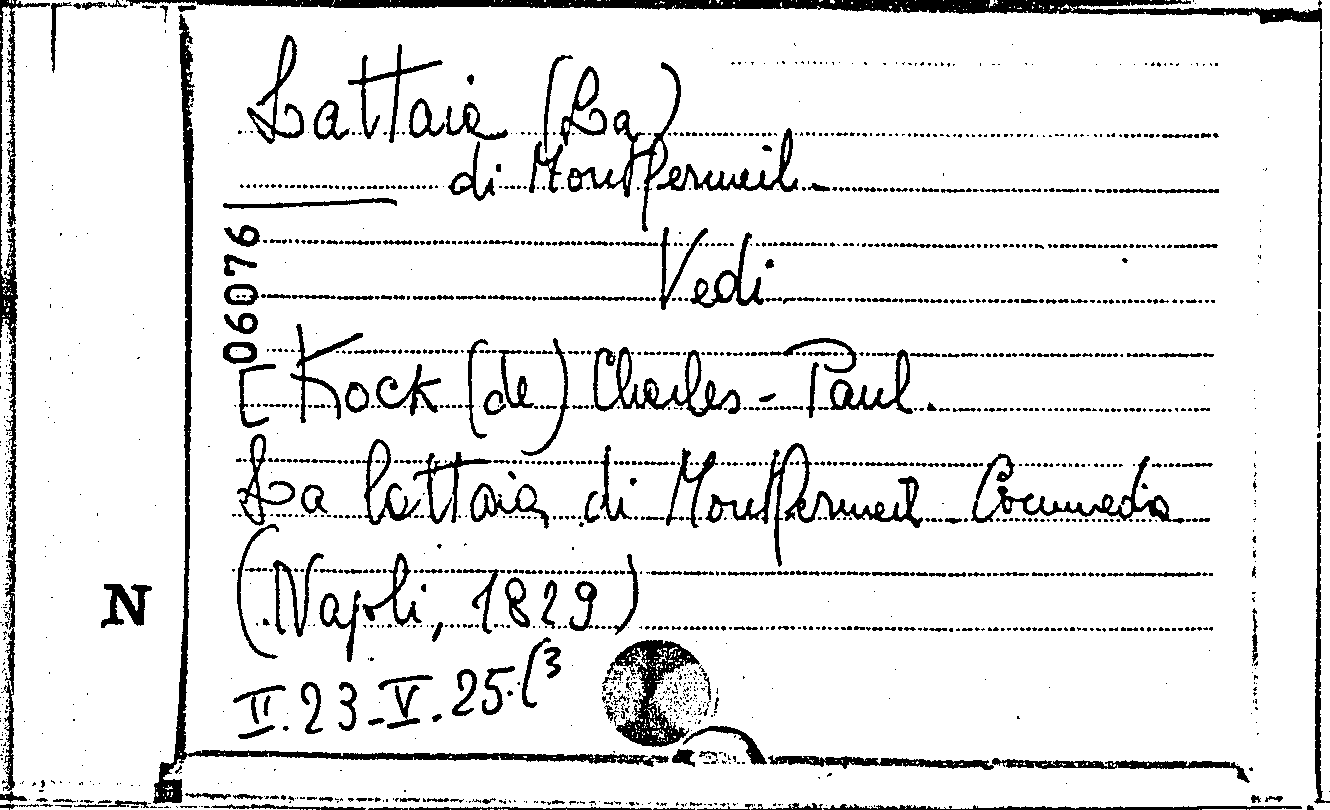 Lattaia (La)
di Montfermeil.
06076
Vedi
[Kock (de) Charles-Paul.
La lattaia di Montfermeil. Commedia
(Napoli, 1829)
N
II.23-V.25.(3